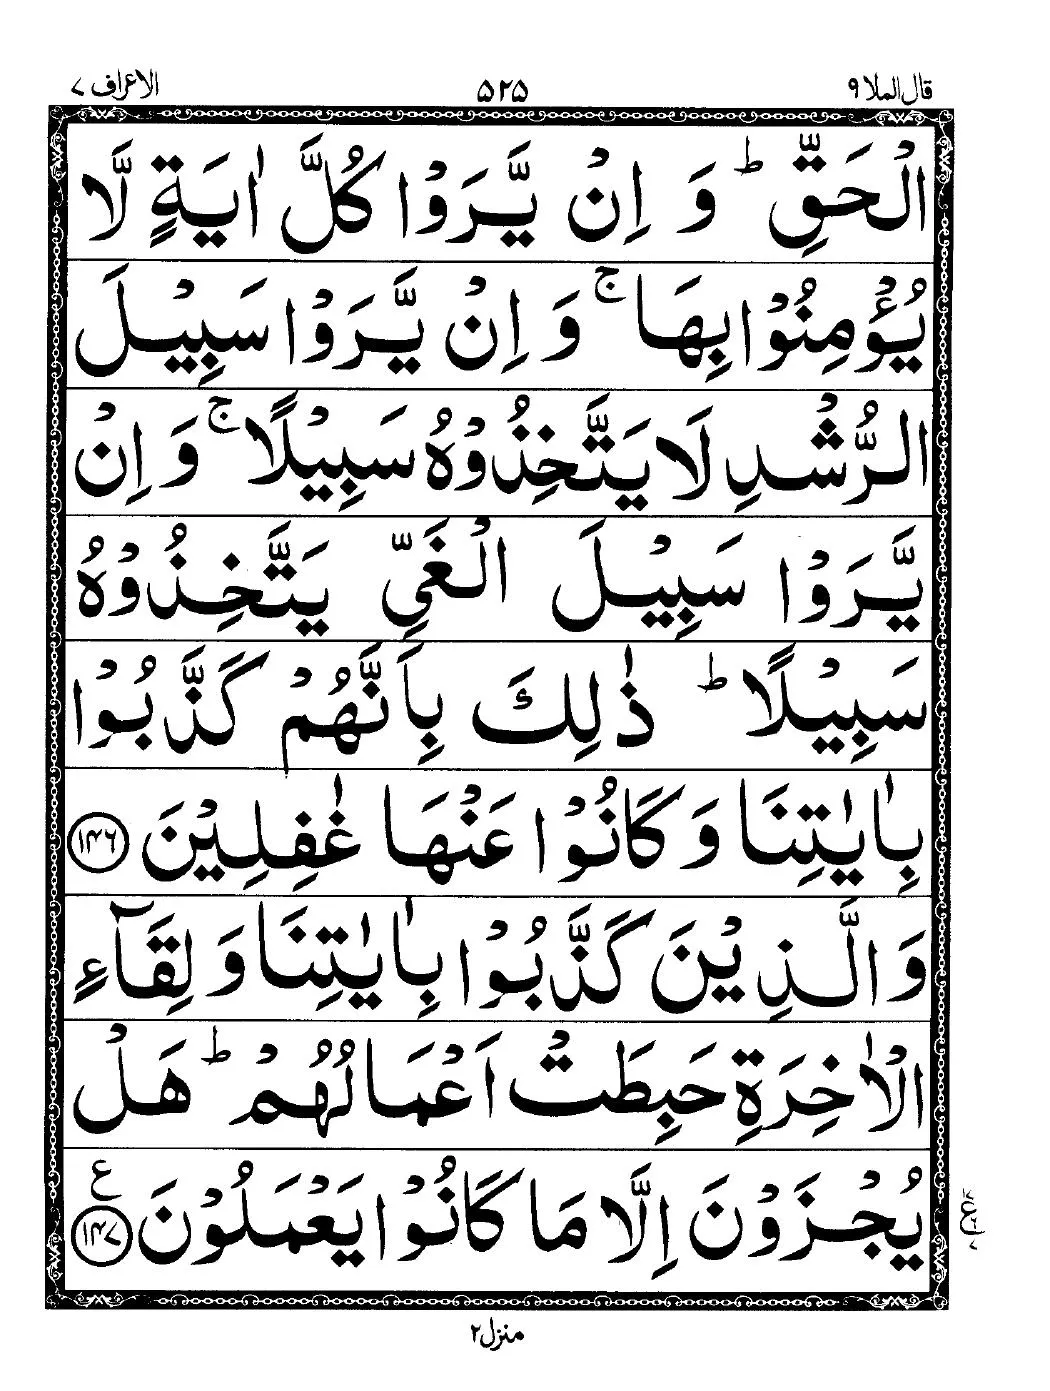 قال الملا ۹ ۵۲۵ الاعراف ۷
الْحَقِّ ؕ وَ اِنْ یَّرَوْا كُلَّ اٰیَةٍ لَّا
یُؤْمِنُوْا بِهَا ۚ وَ اِنْ یَّرَوْا سَبِیْلَ
الرُّشْدِ لَا یَتَّخِذُوْهُ سَبِیْلًا ۚ وَ اِنْ
یَّرَوْا سَبِیْلَ الْغَیِّ یَتَّخِذُوْهُ
سَبِیْلًا ؕ ذٰلِكَ بِاَنَّهُمْ كَذَّبُوْا
بِاٰیٰتِنَا وَ كَانُوْا عَنْهَا غٰفِلِیْنَ ۱۴۶
وَ الَّذِیْنَ كَذَّبُوْا بِاٰیٰتِنَا وَ لِقَآءِ
الْاٰخِرَةِ حَبِطَتْ اَعْمَالُهُمْ ؕ هَلْ
یُجْزَوْنَ اِلَّا مَا كَانُوْا یَعْمَلُوْنَ ۱۴۷ ع
منزل ۲